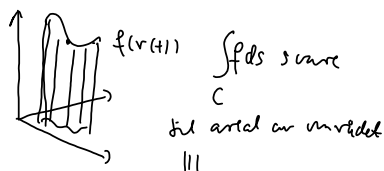 f(r(t))
∫f ds svarer
C
til areal av området
|||